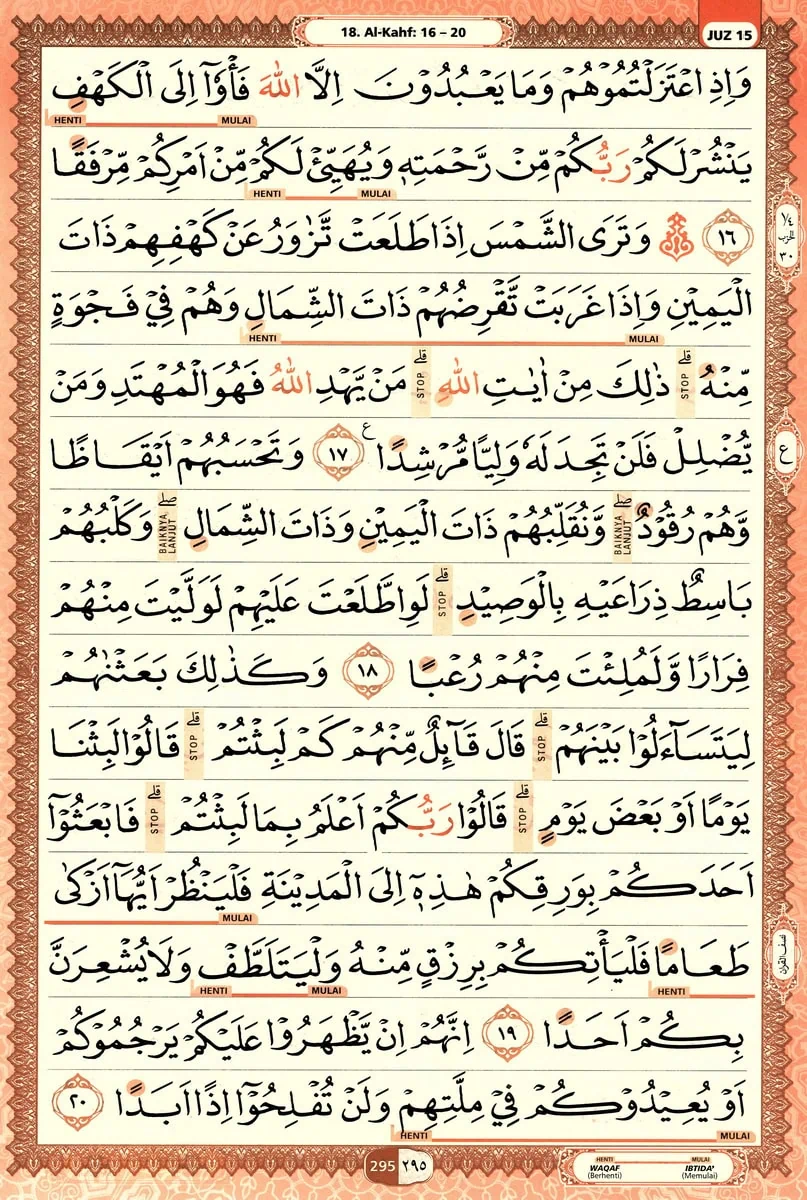 18. Al-Kahf: 16 – 20
JUZ 15
وَاِذِ اعْتَزَلْتُمُوْهُمْ وَمَا يَعْبُدُوْنَ اِلَّا اللّٰهَ فَأْوٗٓا اِلَى الْكَهْفِ
HENTI MULAI
يَنْشُرْ لَكُمْ رَبُّكُمْ مِّنْ رَّحْمَتِهٖ وَيُهَيِّئْ لَكُمْ مِّنْ اَمْرِكُمْ مِّرْفَقًا
HENTI MULAI
١٦ وَتَرَى الشَّمْسَ اِذَا طَلَعَتْ تَّزٰوَرُ عَنْ كَهْفِهِمْ ذَاتَ
١/٤ الحزب ٣٠
الْيَمِيْنِ وَاِذَا غَرَبَتْ تَّقْرِضُهُمْ ذَاتَ الشِّمَالِ وَهُمْ فِيْ فَجْوَةٍ
HENTI MULAI
مِّنْهُ ۗ STOP ذٰلِكَ مِنْ اٰيٰتِ اللّٰهِ ۗ STOP مَنْ يَّهْدِ اللّٰهُ فَهُوَ الْمُهْتَدِ وَمَنْ
يُّضْلِلْ فَلَنْ تَجِدَ لَهٗ وَلِيًّا مُّرْشِدًا ࣖ ١٧ وَتَحْسَبُهُمْ اَيْقَاظًا
ع
وَّهُمْ رُقُوْدٌ ۖ BAIKNYA LANJUT وَّنُقَلِّبُهُمْ ذَاتَ الْيَمِيْنِ وَذَاتَ الشِّمَالِ ۖ BAIKNYA LANJUT وَكَلْبُهُمْ
بَاسِطٌ ذِرَاعَيْهِ بِالْوَصِيْدِ ۗ STOP لَوِ اطَّلَعْتَ عَلَيْهِمْ لَوَلَّيْتَ مِنْهُمْ
فِرَارًا وَّلَمُلِئْتَ مِنْهُمْ رُعْبًا ١٨ وَكَذٰلِكَ بَعَثْنٰهُمْ
لِيَتَسَاۤءَلُوْا بَيْنَهُمْ ۗ STOP قَالَ قَاۤئِلٌ مِّنْهُمْ كَمْ لَبِثْتُمْ ۗ STOP قَالُوْا لَبِثْنَا
يَوْمًا اَوْ بَعْضَ يَوْمٍ ۗ STOP قَالُوْا رَبُّكُمْ اَعْلَمُ بِمَا لَبِثْتُمْ ۗ STOP فَابْعَثُوْٓا
اَحَدَكُمْ بِوَرِقِكُمْ هٰذِهٖٓ اِلَى الْمَدِيْنَةِ فَلْيَنْظُرْ اَيُّهَآ اَزْكٰى
MULAI
طَعَامًا فَلْيَأْتِكُمْ بِرِزْقٍ مِّنْهُ وَلْيَتَلَطَّفْ وَلَا يُشْعِرَنَّ
نصف القرآن
HENTI MULAI HENTI
بِكُمْ اَحَدًا ١٩ اِنَّهُمْ اِنْ يَّظْهَرُوْا عَلَيْكُمْ يَرْجُمُوْكُمْ
اَوْ يُعِيْدُوْكُمْ فِيْ مِلَّتِهِمْ وَلَنْ تُفْلِحُوْٓا اِذًا اَبَدًا ٢٠
HENTI MULAI
295 ٢٩٥
HENTI MULAI
WAQAF IBTIDA'
(Berhenti) (Memulai)